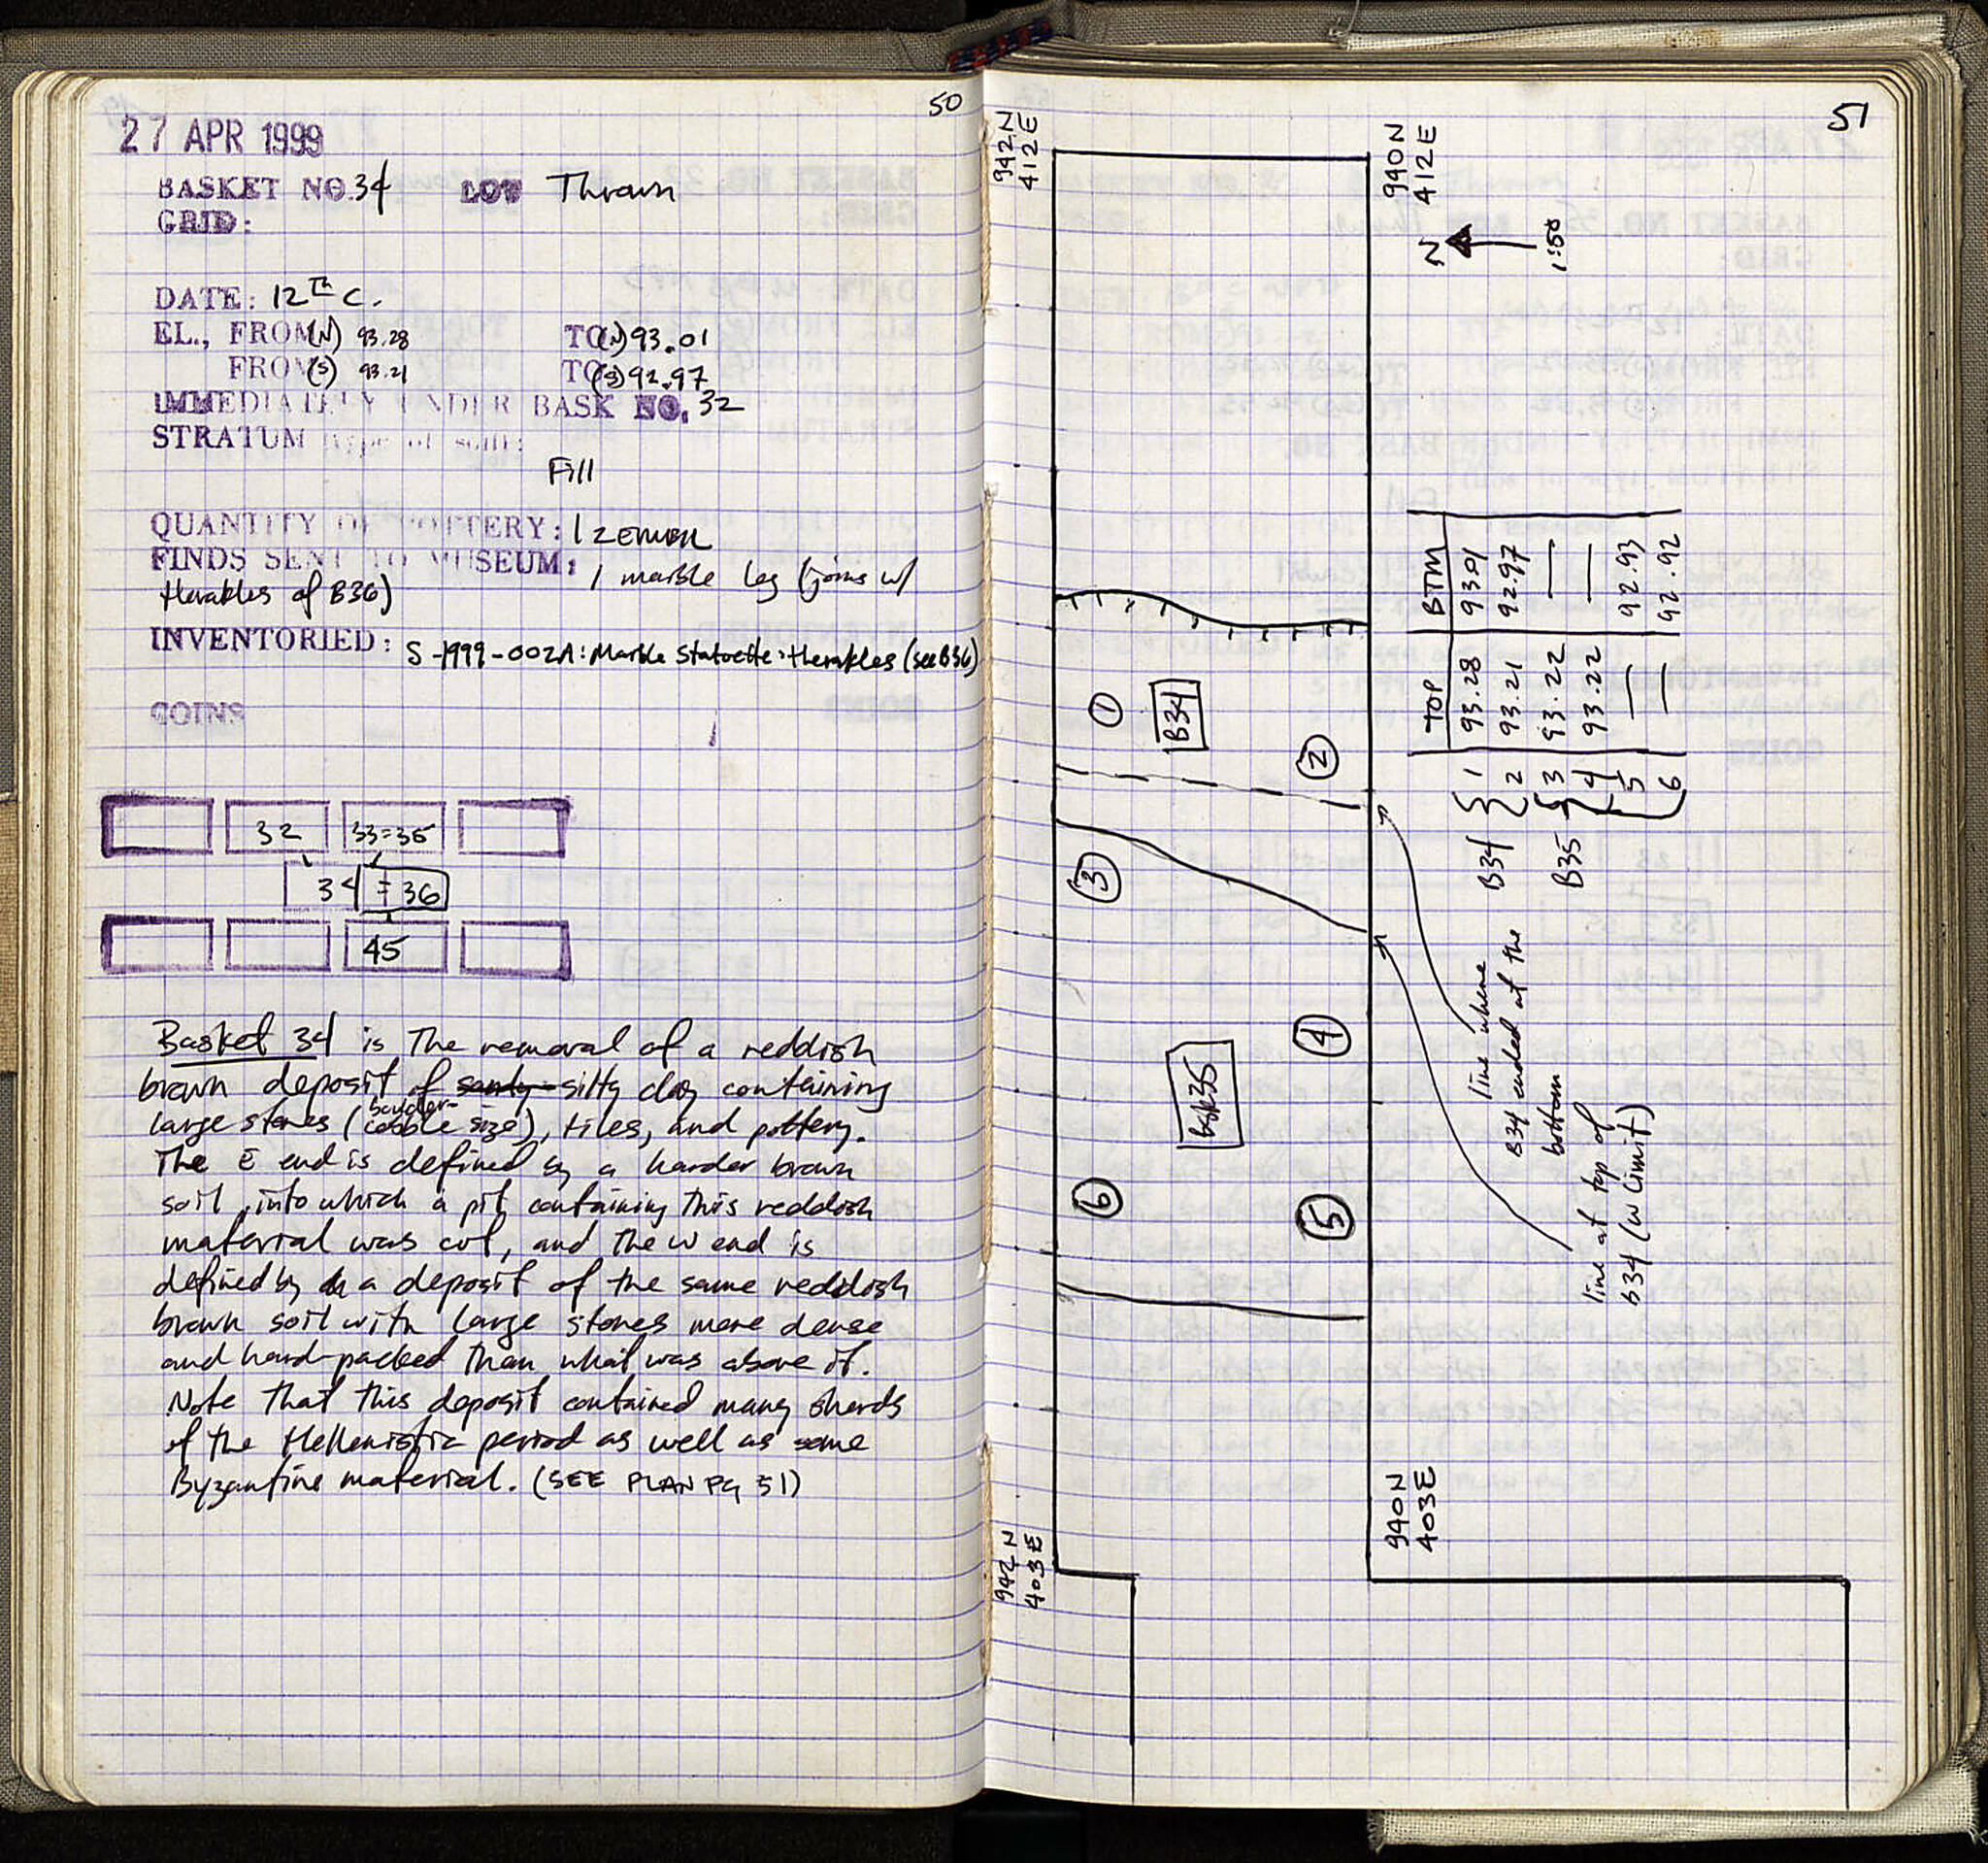 50
27 APR 1999
BASKET NO. 34 LOT Thrown
GRID:
DATE: 12TH C.
EL., FROM (N) 93.28 TO (N) 93.01
FROM (S) 93.21 TO (S) 92.97
IMMEDIATELY UNDER BASK NO. 32
STRATUM (type of soil):
Fill
QUANTITY OF POTTERY: 1 zembil
FINDS SENT TO MUSEUM: 1 marble leg (joins w/
Herakles of B36)
INVENTORIED: S-1999-002A: Marble Statuette: Herakles (see B36)
COINS
32 33=35
34 = 36
45
Basket 34 is the removal of a reddish
brown deposit of sandy silty clay containing
large stones (boulder-
cobble size), tiles, and pottery.
The E end is defined by a harder brown
soil, into which a pit containing this reddish
material was cut, and the W end is
defined by a deposit of the same reddish
brown soil with large stones more dense
and hard-packed than what was above it.
Note that this deposit contained many sherds
of the Hellenistic period as well as some
Byzantine material. (SEE PLAN Pg 51)
51
942 N
412 E
940 N
412 E
N
1:50
TOP BTM
B34 1 93.28 93.01
2 93.21 92.97
B35 3 93.22 —
4 93.22 —
5 — 92.93
6 — 92.92
1
B34
2
3
4
bsk 35
6
5
line where
B34 ended at the
bottom
line at top of
B34 (W limit)
942 N
403 E
940 N
403 E